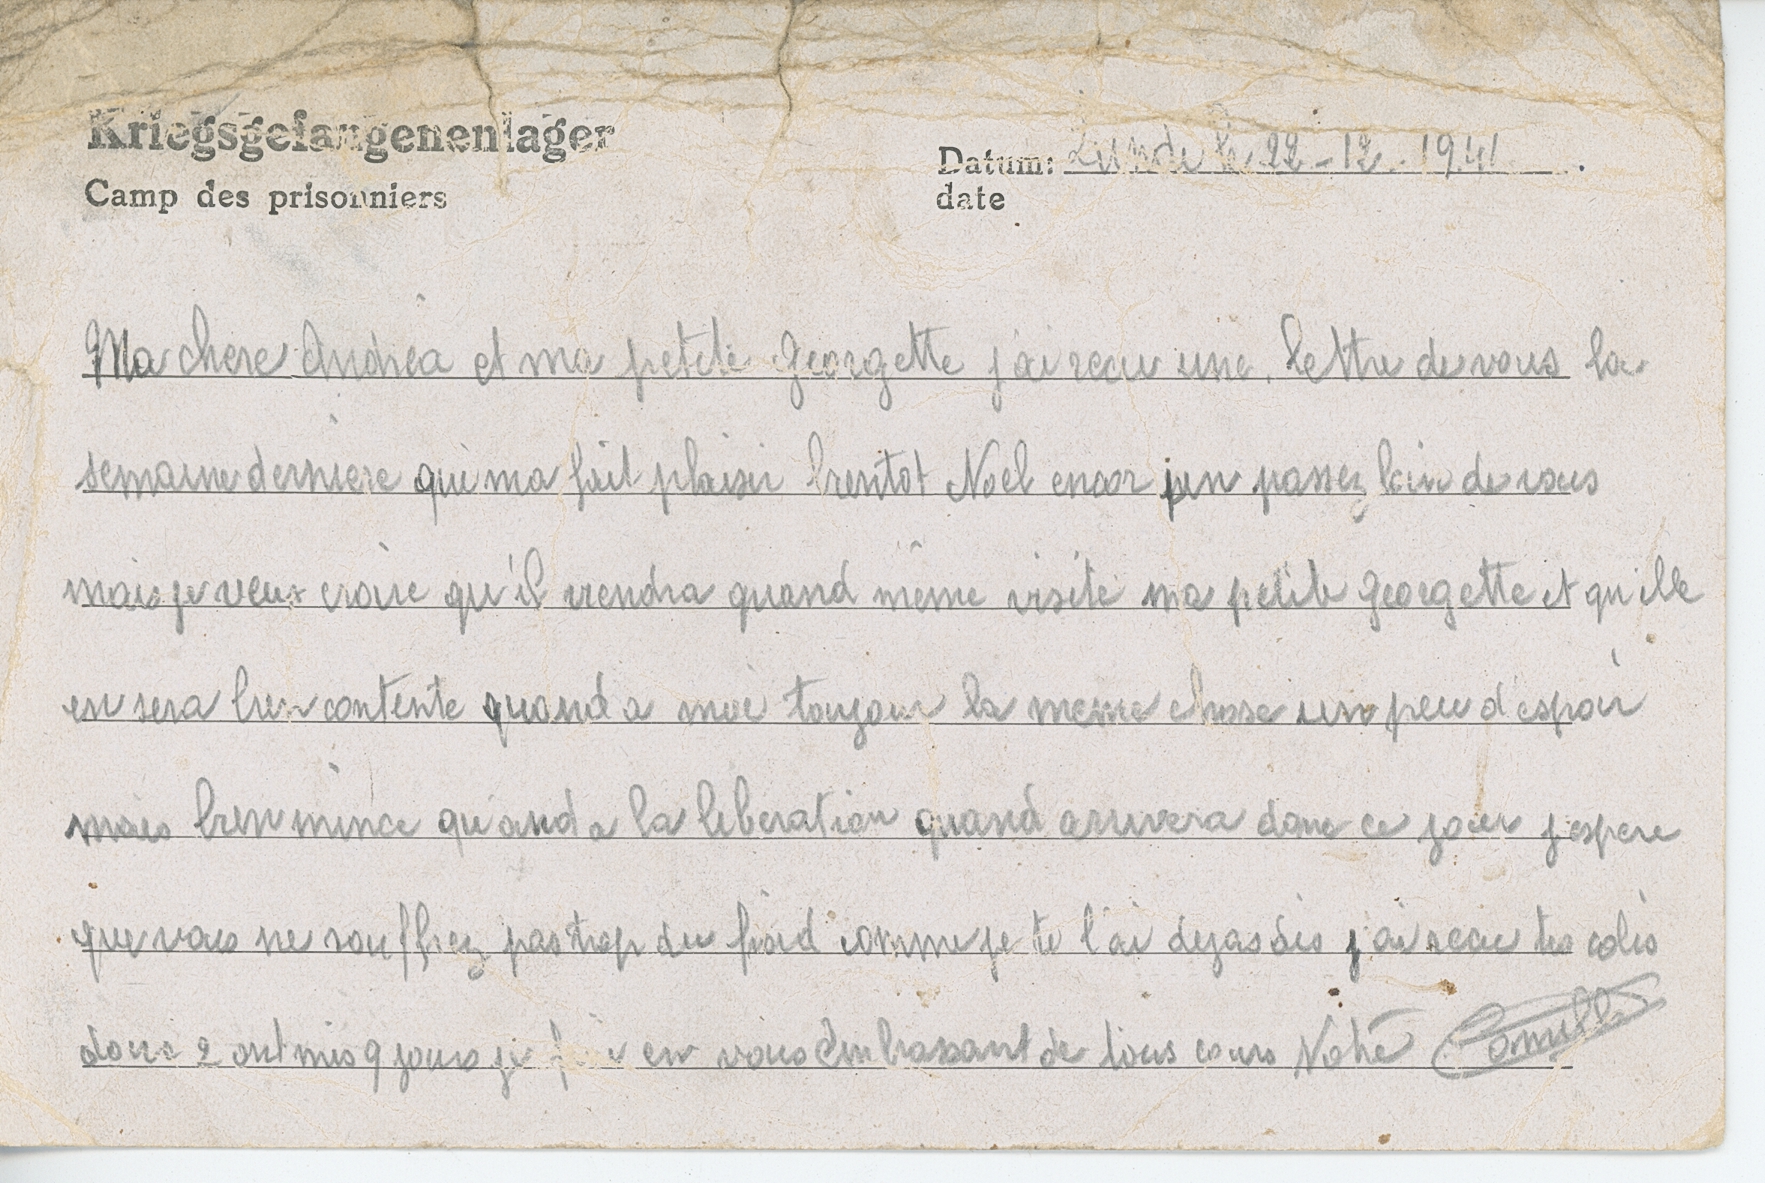 Kriegsgefangenenlager
Camp des prisonniers
Datum: Lunde le 22-12-1941.
date
Ma chere Andréa et ma petite Georgette j'ai recu une lettre de vous la
semaine derniere qui ma fait plaisir bientot Noel encor un passez loin de vous
mais je veux croire qu'il viendra quand même visité ma petite Georgette et qu'elle
en sera bien contente quand a moi toujour la meme chose un peu d'espoir
mais bien mince quand a la liberation quand arrivera donc ce jour j'espere
que vous ne souffrez pas trop du froid comme je te l'ai dejas dis j'ai recu tes colis
dons 2 ont mis 9 jours je en vous Embrassant de tous cours Notre Camille